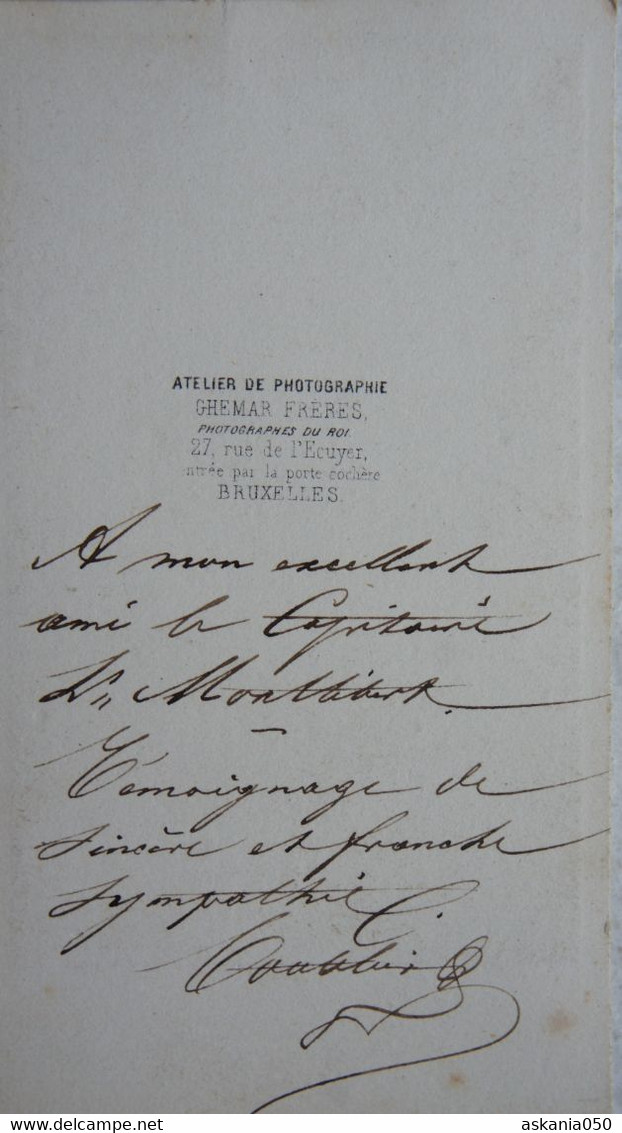 ATELIER DE PHOTOGRAPHIE
GHEMAR FRÈRES,
PHOTOGRAPHES DU ROI
27, rue de l'Ecuyer,
entrée par la porte cochère
BRUXELLES.
A mon excellent
ami le Capitaine
Témoignage de
sincère et franche
sympathie
C.
delcampe.net
askania050